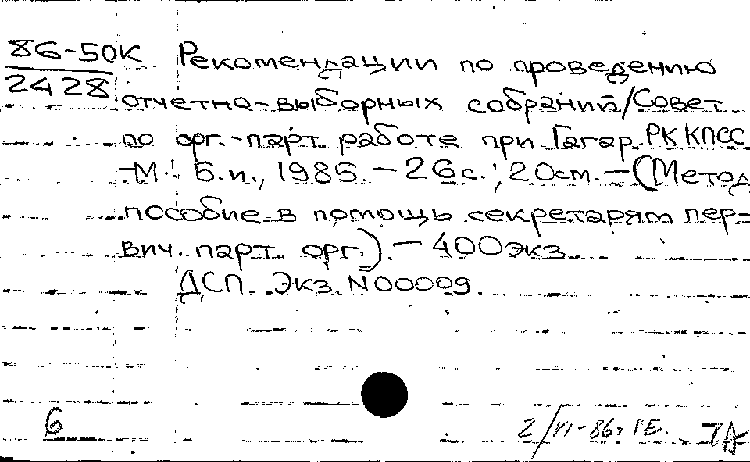 86-50К Рекомендации по проведению
2428 отчетно-выборных собраний/Совет
по орг.-парт. работе при Гагар. РК КПСС
-М.: Б.и., 1985. - 26с.; 20см. - (Метод.
пособие в помощь секретарям пер-
вич. парт. орг.) - 400экз.
ДСП. Экз. N00009.
6 2/VI-86г.